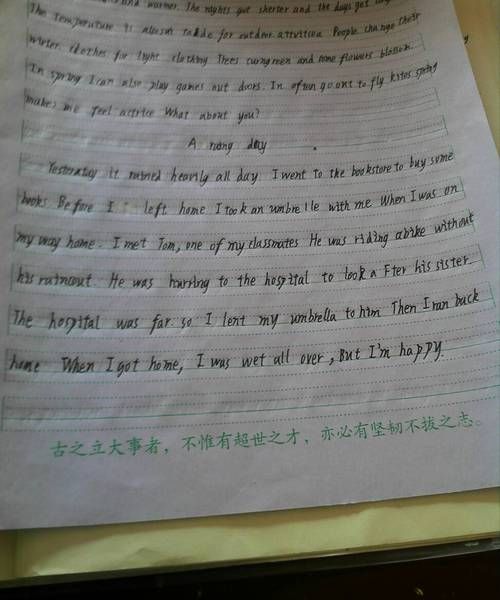 and warmer. The nights get shorter and the days get
The temperature is also for outdoor People change their
winter clothes for light clothing Trees turn green and flowers blossom.
In spring I can also play games out doors. In often go out to fly kites spring
makes me feel What about you?
A rang day
Yesterday it rained heavily all day I went to the bookstore to buy some
books Before I left home I took an umbrella with me When I was on
my way home. I met Tom, one of my classmates He was riding a bike without
his raincout. He was hurring to the hospital to look a Fter his sister
The hospital was far. so I lent my umbrella to him Then I ran back
home When I got home, I was wet all over, But I'm happy.
古之立大事者，不惟有超世之才，亦必有坚韧不拔之志。